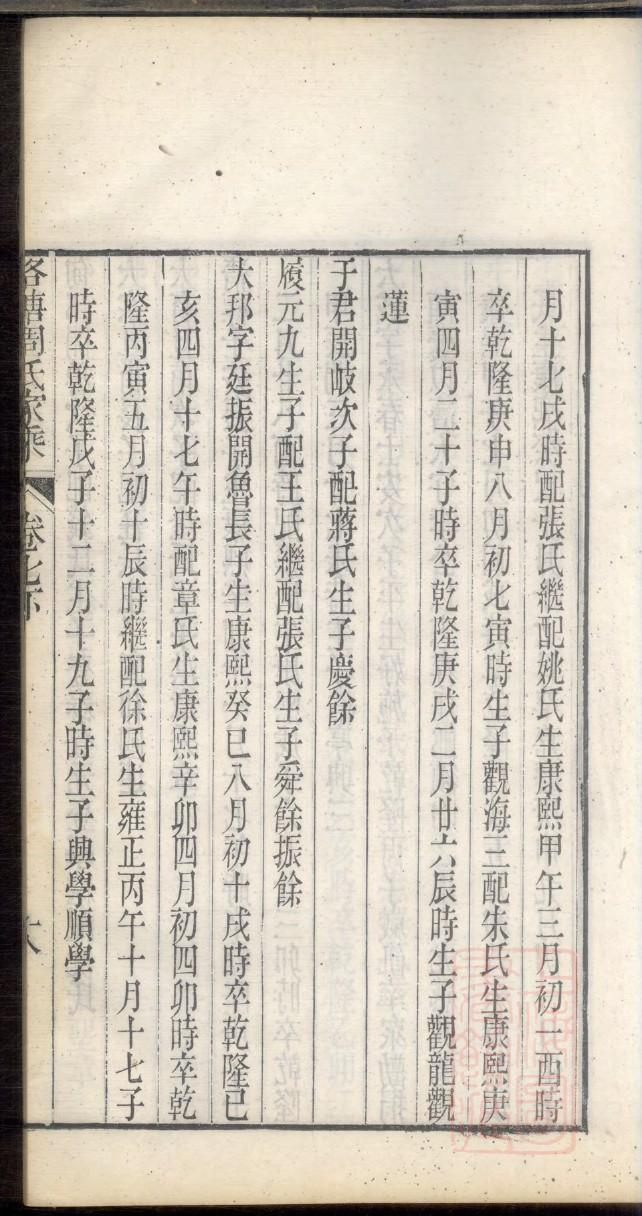 月十七戌時配張氏繼配姚氏生康熙甲午三月初一酉時
卒乾隆庚申八月初七寅時生子觀海三配朱氏生康熙庚
寅四月二十子時卒乾隆庚戌二月廿六辰時生子觀龍觀
蓮
子君開岐次子配蔣氏生子慶餘
履元九生子配王氏繼配張氏生子舜餘振餘
大邦字廷振開魯長子生康熙癸巳八月初十戌時卒乾隆己
亥四月十七午時配章氏生康熙辛卯四月初四卯時卒乾
隆丙寅五月初十辰時繼配徐氏生雍正丙午十月十七子
時卒乾隆戊子十二月十九子時生子興學順學
洛塘周氏家乘 卷七下